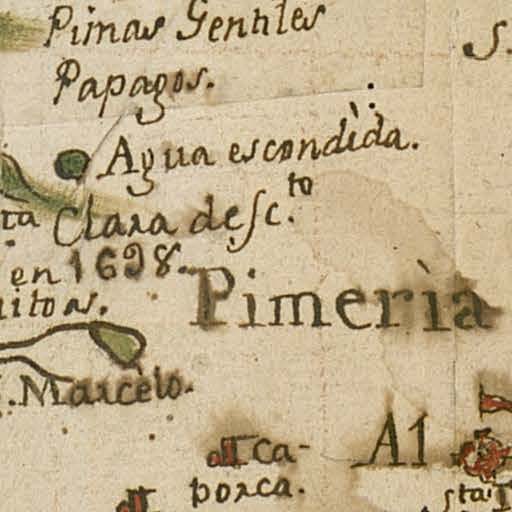 Pimas Gentiles
Papagos.
S.
Agua escondìda.
ta Clara desc.to
en 1698.
uitoas.
Pimerìa
S. Marcèlo.
Ca-
porca.
Al
sta.